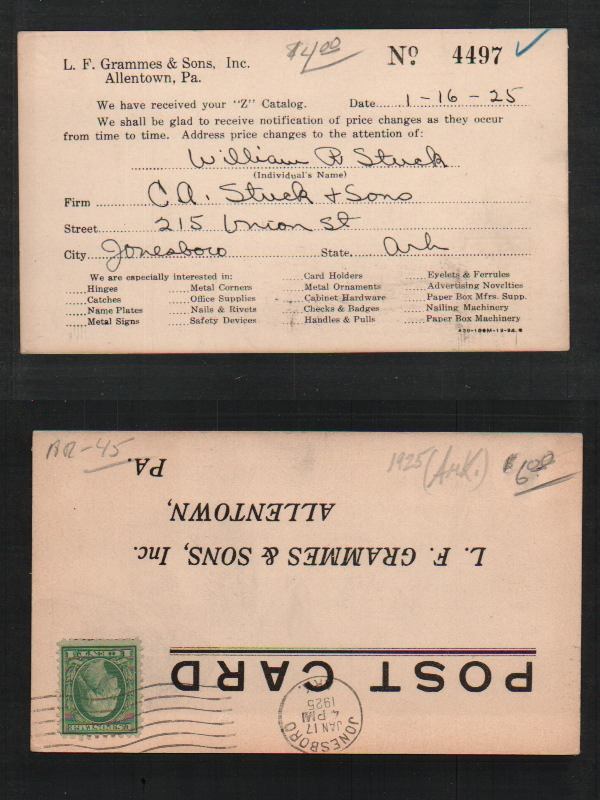 $4.00
L. F. Grammes & Sons, Inc.
Allentown, Pa.
No. 4497
We have received your "Z" Catalog. Date 1-16-25
We shall be glad to receive notification of price changes as they occur
from time to time. Address price changes to the attention of:
William R Stuck
(Individual's Name)
Firm C.A. Stuck & Sons
Street 215 Union St
City Jonesboro State Ark
We are especially interested in:
.....Hinges
.....Catches
.....Name Plates
.....Metal Signs
.....Metal Corners
.....Office Supplies
.....Nails & Rivets
.....Safety Devices
.....Card Holders
.....Metal Ornaments
.....Cabinet Hardware
.....Checks & Badges
.....Handles & Pulls
.....Eyelets & Ferrules
.....Advertising Novelties
.....Paper Box Mfrs. Supp.
.....Nailing Machinery
.....Paper Box Machinery
AR-45
1925 (Ark.)
$6.00
POST CARD
L. F. GRAMMES & SONS, Inc.
ALLENTOWN,
PA.
JONESBORO
JAN 17
4 PM
1925
1 CENT 1